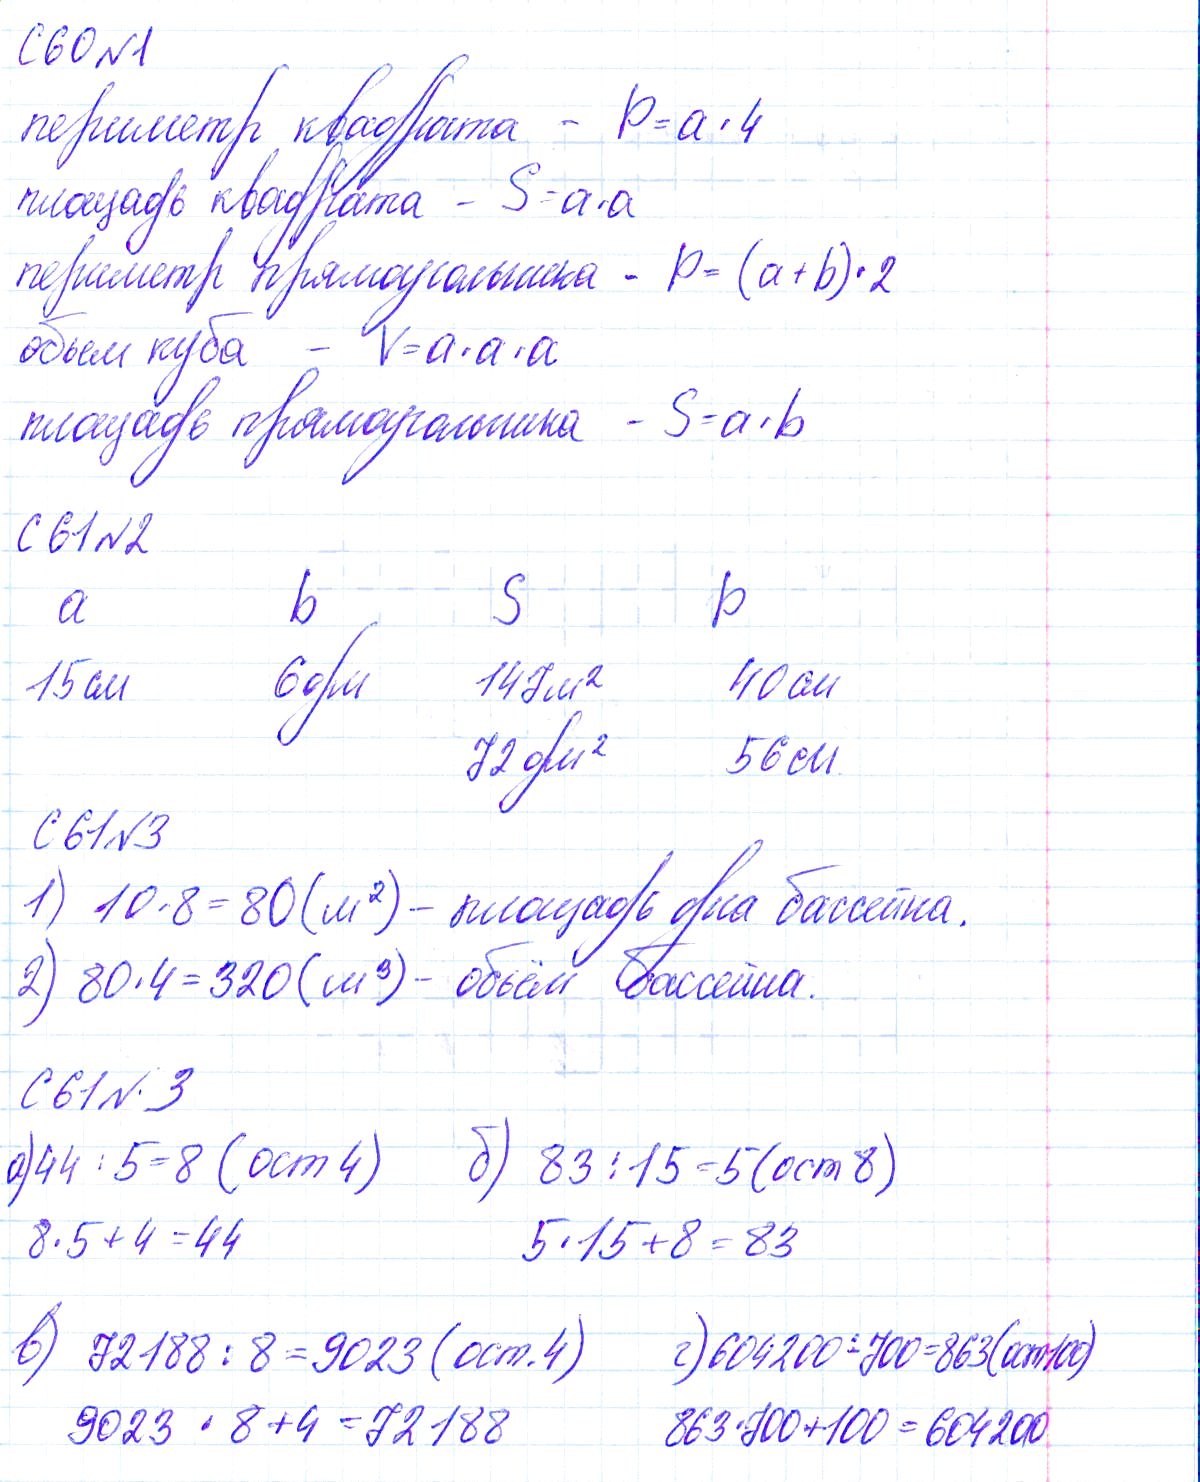 С 60 №1
периметр квадрата - P=a·4
площадь квадрата - S=a·a
периметр прямоугольника - P=(a+b)·2
обьем куба - V=a·a·a
площадь прямоугольника - S=a·b
С 61 №2
a b S P
15см 6дм 147м² 40см
72дм² 56см
С 61 №3
1) 10·8=80(м²) - площадь дна бассейна.
2) 80·4=320(м³) - обьём бассейна.
С 61 №.3
а) 44:5=8 (ост 4) б) 83:15=5(ост 8)
8·5+4=44 5·15+8=83
в) 72188:8=9023(ост.4) г) 604200:700=863(ост100)
9023·8+4=72188 863·700+100=604200